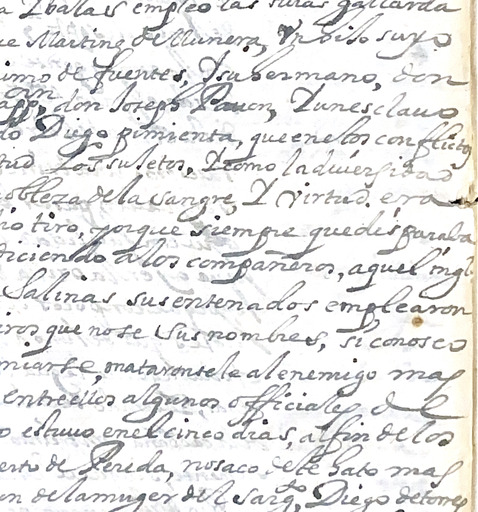 a Y balas empleo las suias gallarda
ue Martinez de Munera, Un viso suyo
simo de fuentes, Y su hermano, don
don Joseph Pavon, Y un esclavo
do Diego pimienta, que en elos conflictos
tud Los suietos, Y como la diversidad
nobleza de la sangre, Y virtud. era
rio tiro, porque siempre que disparaba
diciendo a los compañeros, aquel ingl
Salinas sus entenados emplearon
iros que no se sus nombres, si conosco
miarse, mataronsele al enemigo mas
entre ellos algunos officiales de el
o estuvo en el cinco dias, al fin de los
erto de Pereda, no saco de este hato mas
on de la muger del sargto, Diego de torres